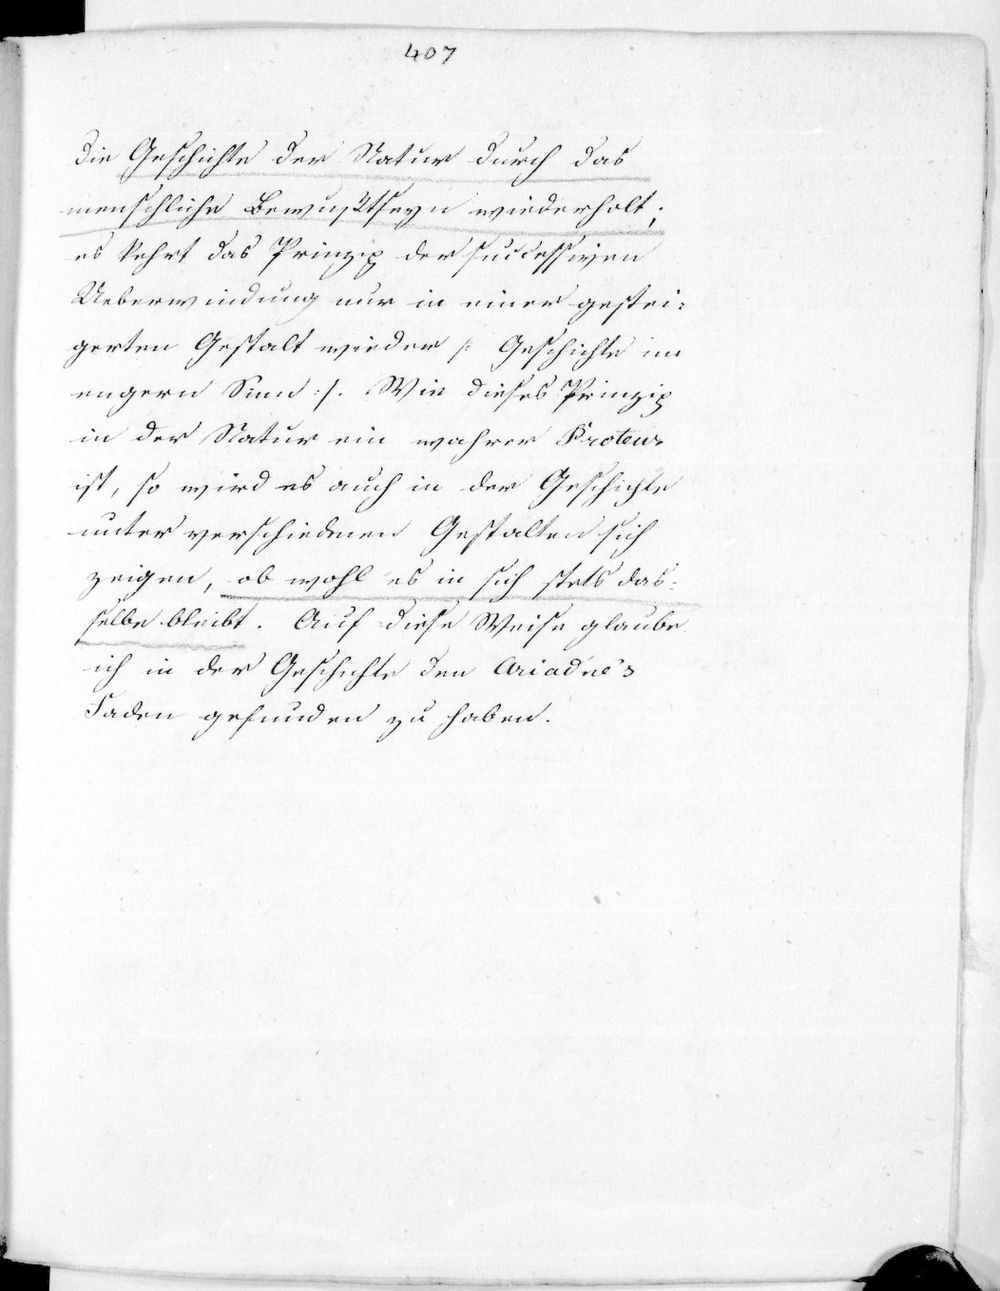 407
die Geschichte der Natur durch das
menschliche Bewußtseyn wiederholt;
es kehrt das Prinzip der successiven
Ueberwindung nur in einer gestei:
gerten Gestalt wieder /: Geschichte im
engern Sinn :/. Wie dieses Prinzip
in der Natur ein wahrer Proteus
ist, so wird es auch in der Geschichte
unter verschiedenen Gestalten sich
zeigen, ob wohl es in sich stets das:
selbe bleibt. Auf diese Weise glaube
ich in der Geschichte den Ariadne's
Faden gefunden zu haben.